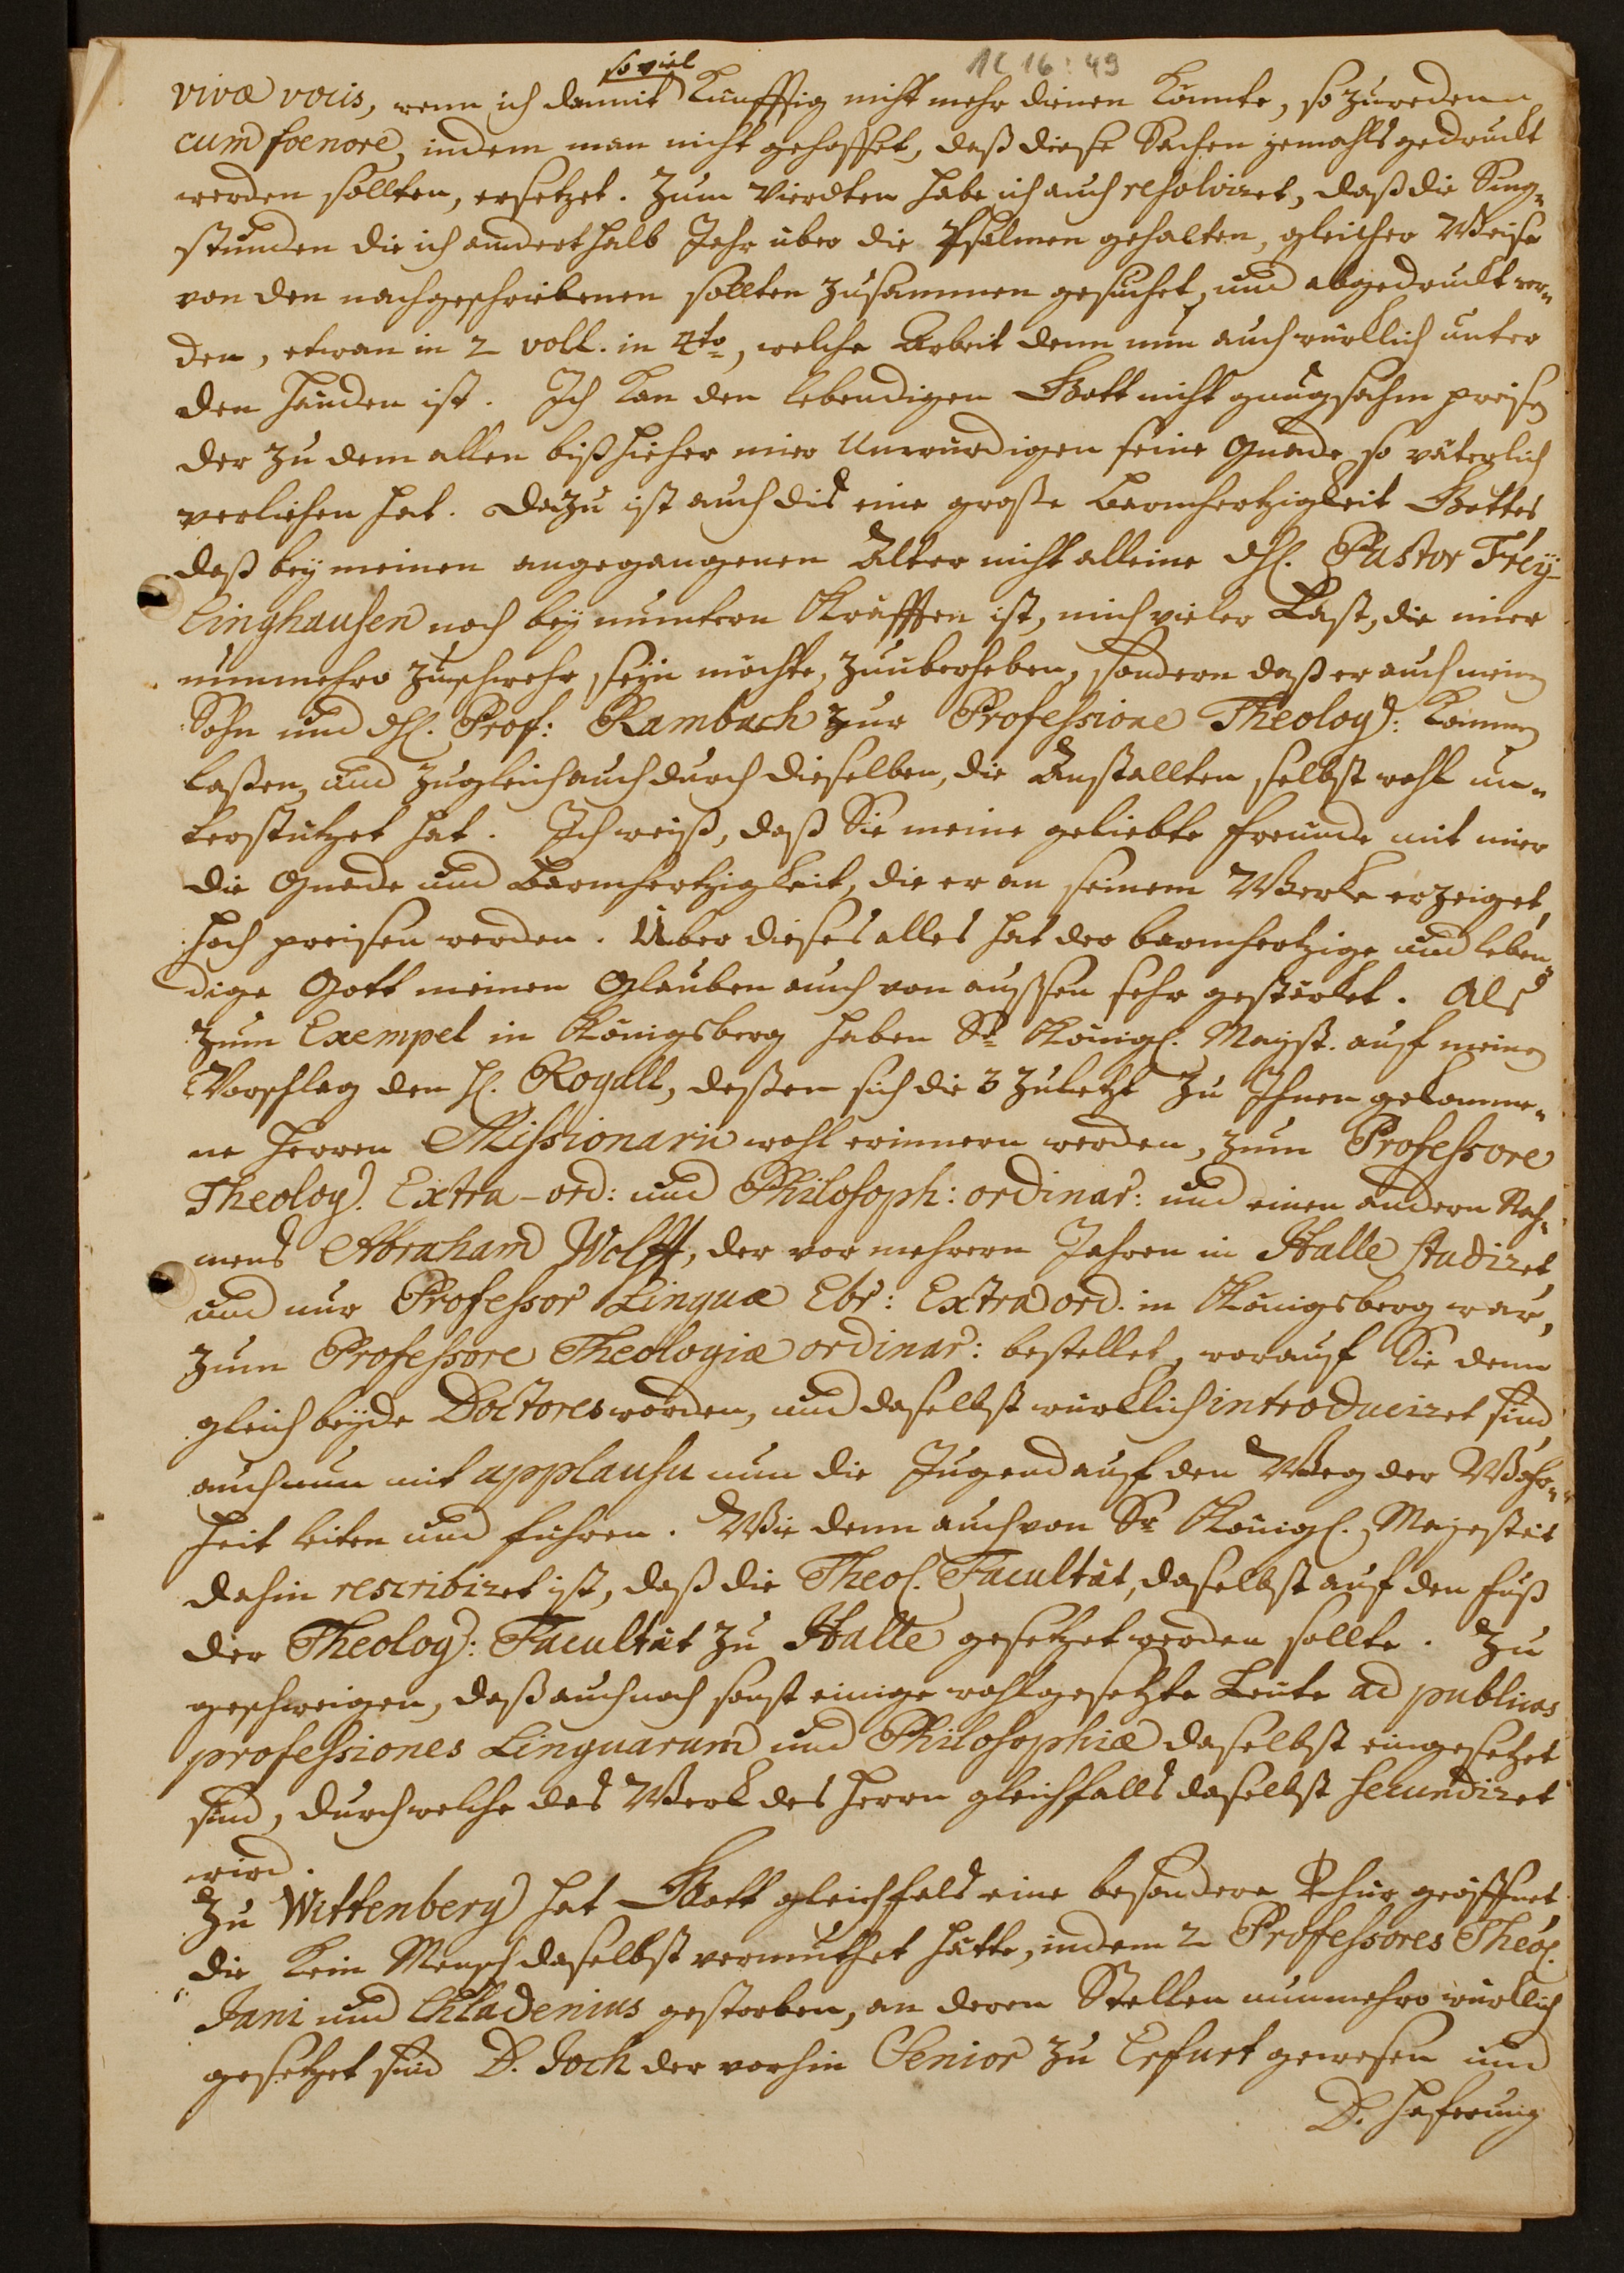 1C 16:49
so viel
vivæ vocis, wenn ich damit Künfftig nicht mehr dienen Könnte, so zureden
cum foenore, indem man nicht gehoffet, daß diese Sachen jemahls gedruckt
werden sollten, ersetzet. Zum Vierdten habe ich auch resolviret, daß die Sing-
stunden die ich anderthalb Jahr über die Psalmen gehalten, gleicher Weise
von den nachgeschriebenen sollten zusammen gesuchet, und abgedruckt wer-
den, etwan in 2 voll. in 4to, welche Arbeit denn nun auch würklich unter
den Händen ist. Ich kan den lebendigen Gott nicht gnugsahm preisen
der zu dem allen bißhieher mier Unwürdigen seine Gnade so väterlich
verliehen hat. Dazu ist auch dis eine große Barmhertzigkeit Gottes,
daß bey meinen angegangenen Alter nicht alleine H. Pastor Frey-
linghausen noch bey muntern Kräfften ist, mich vieler Last, die mier
nunmehro zuschwehr seyn möchte, zuüberheben, sondern daß er auch meinen
Sohn und H. Prof: Rambach zur Professione Theolog: kommen
laßen, und zugleich auch durch dieselben, die Anstallten selbst wohl un-
terstützet hat. Ich weiß, daß Sie meine geliebte Freunde mit mier
die Gnade und Barmhertzigkeit, die er an seinem Werke erzeiget,
hoch preisen werden. Über dieses alles hat der barmhertzige und leben-
dige Gott meinen Glauben auch von aussen sehr gestärket. Als
zum Exempel in Königsberg haben Sr Königl. Mayst. auf meinen
Vorschlag den H. Rogall, deßen sich die 3 zuletzt zu Ihnen gekomme-
ne Herren Missionarii wohl erinnern werden, zum Professore
Theolog. Extra-ord: und Philosoph: ordinar: und einen andern Nah-
mens Abraham Wolff, der vor mehrern Jahren in Halle studiret,
und nur Professor Linguæ Ebr: Extraord. in Königsberg war,
zum Professore Theologiæ ordinar: bestellet, worauf Sie denn
gleich beyde Doctores worden, und daselbst würklich introduciret sind,
auch nun mit applausu nun die Jugend auf den Weg der Wahr-
heit leiten und führen. Wie denn auch von Sr Königl. Majestät
dahin rescribiret ist, daß die Theol. Facultät, daselbst auf den Fuß
der Theolog: Facultät zu Halle gesetzet werden sollte. Zu
geschweigen, daß auch noch sonst einige wohlgesetzte Leute ad publicas
professiones Linguarum und Philosophiæ daselbst eingesetzet
sind, durch welche das Werk des Herrn gleichfalls daselbst secundiret
wird.
Zu Wittenberg hat Gott gleichfals eine besondere Thür geöffnet,
die kein Mensch daselbst vermuthet hätte, indem 2 Professores Theol.
Jani und Chladenius gestorben, an deren Stellen nunmehro würklich
gesetzet sind D. Joch der vorhin Senior zu Erfurt gewesen und
D. Haferung